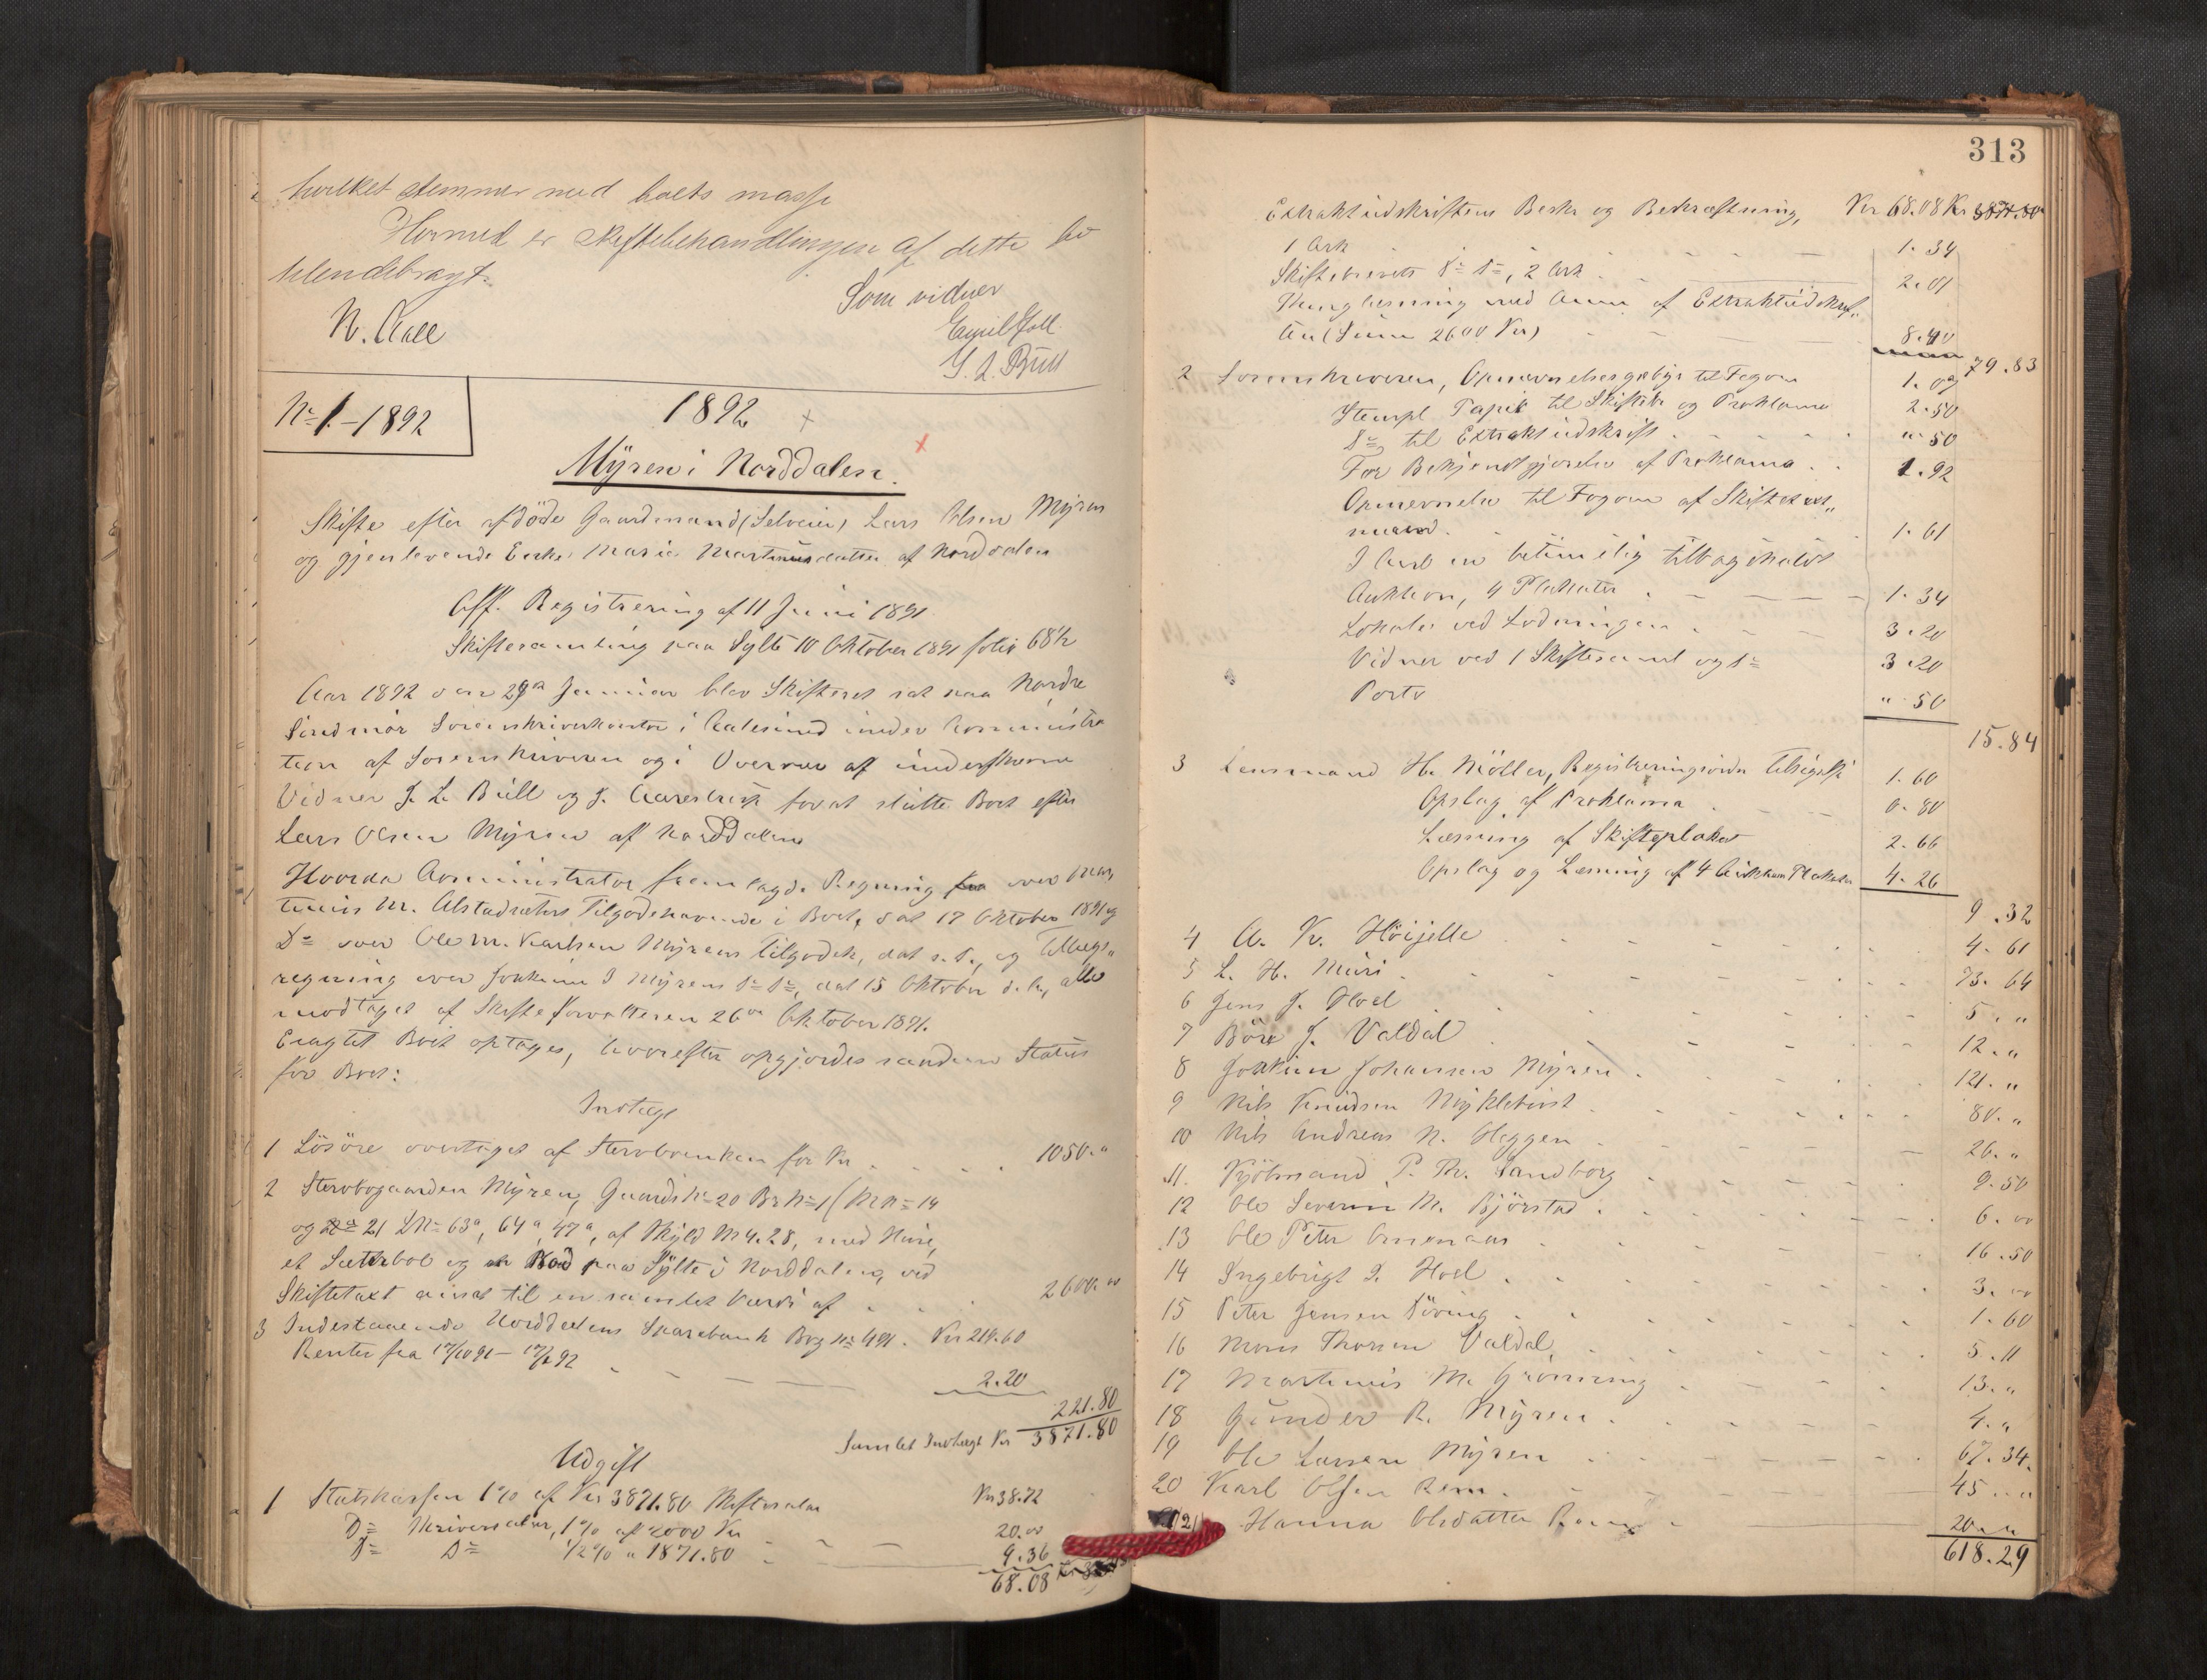 hvilket stemmer med boets masse
Hermed er skiftebehandlingen af dette bo
tilendebragt.
N. Aall
Som vidner
Emil Goll
J. L. Büll
No 1 - 1892
1892
Mÿren i Norddalen.
Skifte efter afdöde Gaardmand (Selveier) Lars Olsen Mÿren
og gjenlevende Enke Marie Martinusdatter af Norddalen
Aff. Registrering af 11 Juni 1891.
Skiftesamling paa Sylte 10 Oktober 1891 folio 68 1/2
Aar 1892 den 29de Januar blev Skifteret sat paa Nordre
Söndmör Sorenskriverkontor i Aalesund under Administra
tion af Sorenskriveren og i Overvær af underskrevne
Vidner J. L. Büll og J. Aarestrup for at slutte Boet efter
Lars Olsen Mÿren af Norddalen
Hvorda Administrator fremlagde Regning over Mar
tinus M. Alstadsæters Tilgodehavende i Boet, dat 17 Oktober 1891 og
Do over Ole M. Karlsen Mÿrens Tilgodeh, dat s. D., og Tillægs„
regning over Joakim J Mÿrens Do Do, dat 15 Oktober d. A., alle
modtaget af Skifteforvalteren 26de Oktober 1891.
Eragtet Boet optages, hvorefter opgjordes saadan Status
for Boet:
Indtægt
1 Lösöre overtaget af Stervboenken for Kr 1050."
2 Stervbogaarden Mÿren, Gaards No 20 Br No 1 (M No 14
og 21 L No 63a, 64a, 47a, af Skyld M 4.28, med Huse,
et Sæterbol og Nöd paa Sÿlte i Norddalen, ved
Skiftetaxt ansat til en samlet Værdi af 2600.00
3 Indestaaende Norddalens Sparebank Bog No 491. Kr 219.60
Renter fra 17/10 91 - 17/1 92 2.20
221.80
Samlet Indtægt Kr 3871.80
Udgift
1 Statskassen 1% af Kr 3871.80 Skiftesalær Kr 38.72
Do Skriversalær, 1% af 2000 Kr 20.00
Do Do 1/2% " 1871.80 9.36
68.08
313
Extraktudskriftens Beskr og Bekræftning, Kr 68.08 Kr 3871.80
1 Ark 1.34
Skiftebrevets Do Do, 2 Ark 2.01
Thinglæsning med Anm. af Extraktudskrif„
ten (Sum 2600 Kr) 8.40
79.83
2 Sorenskriveren, Opnævnelsesgebyr til Fogden 1.07
Stempl Papir til Skiftebr og Proklama 2.50
Do til Extraktudskrift " 50
For Bekjendtgjörelse af Proklama 1.92
Opnævnelse til Fogden af Skiftetaxt„
mænd. 1.61
I Anl en betimelig tilbagekaldt
Auktion, 4 Plakater 1.34
Lokale ved Lodningen 3.20
Vidner ved 1 Skiftesaml og Do 3.20
Porto " 50
15.84
3 Lensmand H. Möller, Registreringsordr Tilsigelse 1.60
Opslag af Proklama 0.80
Læsning af Skifteplakat 2.66
Opslag og Læsning af 4 Auktions Plakater 4.26
9.32
4 A. K. Höijelle 4.61
5 L. H. Muri 73.64
6 Jens J. Hoel 5."
7 Böre J. Valdal 12."
8 Joakim Johansen Mÿren 121."
9 Nils Knudsen Mÿklebust 80."
10 Nils Andreas N. Heggen 26."
11. Kjöbmand P. Th. Sandborg 9.50
12 Ole Severin M. Björstad 6.00
13 Ole Peter 16.50
14 Ingebrigt I. Hoel 3.00
15 Peter Jensen Döving 1.60
16 Mons Thorsen Valdal 5.11
17 Martinus M. Grönning 13."
18 Gunder R. Mÿren 4."
19 Ole Larsen Mÿren 67.34.
20 Karl Olsen Rem. 45."
21 Hanna Olsdatter Rem 20."
618.29